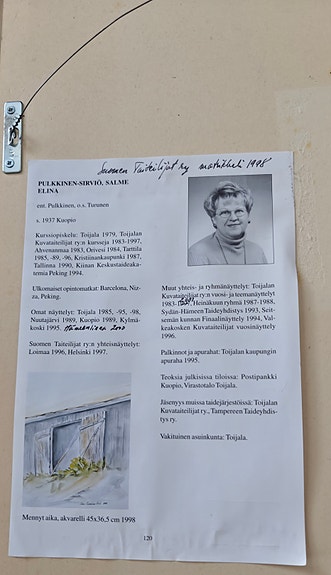 Suomen Taiteilijat ry matrikkeli 1998
PULKKINEN-SIRVIÖ, SALME
ELINA
ent. Pulkkinen, o.s. Turunen
s. 1937 Kuopio
Kurssiopiskelu: Toijala 1979, Toijalan
Kuvataiteilijat ry:n kursseja 1983-1997,
Ahvenanmaa 1983, Orivesi 1984, Tarttila
1985, -89, -96, Kristiinankaupunki 1987,
Tallinna 1990, Kiinan Keskustaideaka-
temia Peking 1994.
Ulkomaiset opintomatkat: Barcelona, Niz-
za, Peking.
Omat näyttelyt: Toijala 1985, -95, -98,
Nuutajärvi 1989, Kuopio 1989, Kylmä-
koski 1995. Hämeenlinna 2000
Suomen Taiteilijat ry:n yhteisnäyttelyt:
Loimaa 1996, Helsinki 1997.
Mennyt aika, akvarelli 45x36,5 cm 1998
Muut yhteis- ja ryhmänäyttelyt: Toijalan
Kuvataiteilijat ry:n vuosi- ja teemanäyttelyt
1983- Heinäkuun ryhmä 1987-1988,
Sydän-Hämeen Taideyhdistys 1993, Seit-
semän kunnan Finaalinäyttely 1994, Val-
keakosken Kuvataiteilijat vuosinäyttely
1996.
Palkinnot ja apurahat: Toijalan kaupungin
apuraha 1995.
Teoksia julkisissa tiloissa: Postipankki
Kuopio, Virastotalo Toijala.
Jäsenyys muissa taidejärjestöissä: Toijalan
Kuvataiteilijat ry., Tampereen Taideyhdis-
tys ry.
Vakituinen asuinkunta: Toijala.
120